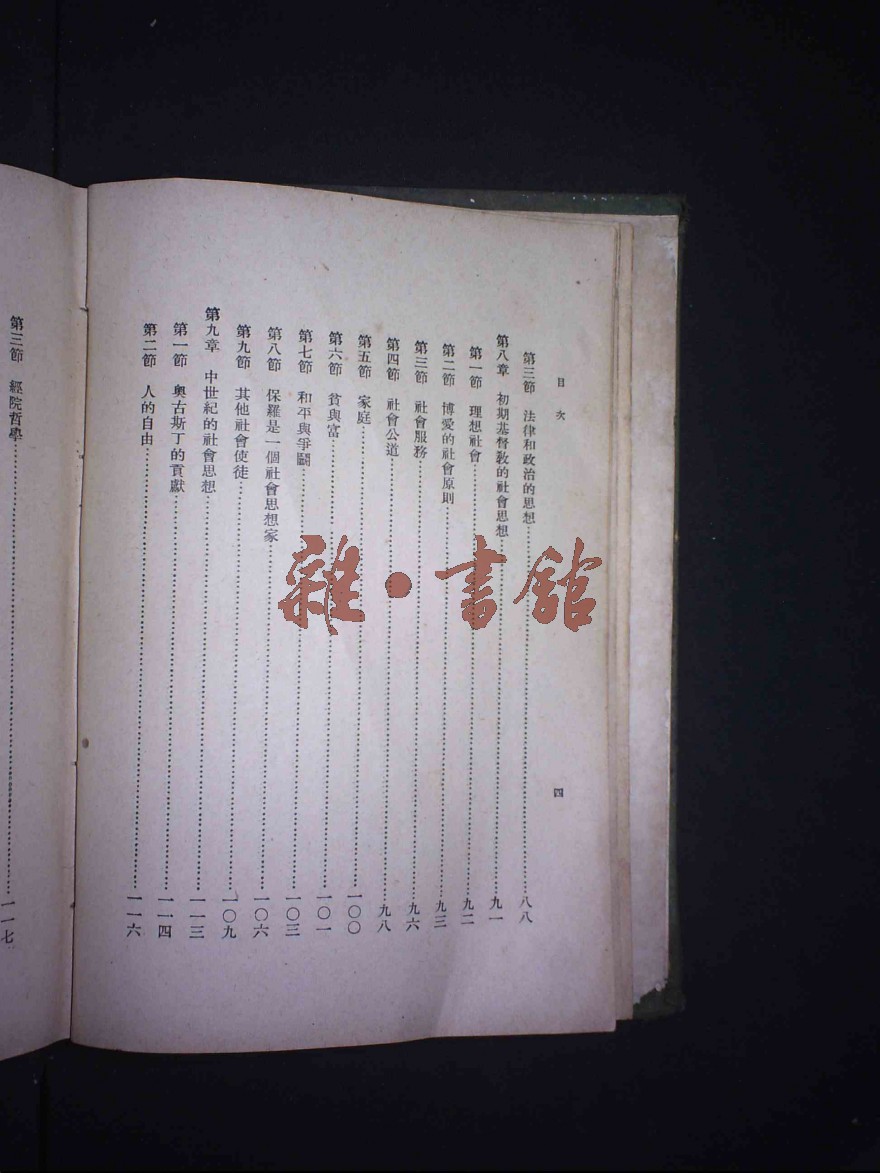 目次
四
第三節 法律和政治的思想……八八
第八章 初期基督教的社會思想……九一
第一節 理想社會……九二
第二節 博愛的社會原則……九三
第三節 社會服務……九六
第四節 社會公道……九八
第五節 家庭……一〇〇
第六節 貧與富……一〇一
第七節 和平與爭鬭……一〇三
第八節 保羅是一個社會思想家……一〇六
第九節 其他社會使徒……一〇九
第九章 中世紀的社會思想……一一三
第一節 奧古斯丁的貢獻……一一四
第二節 人的自由……一一六
第三節 經院哲學……一一七
雜·書館